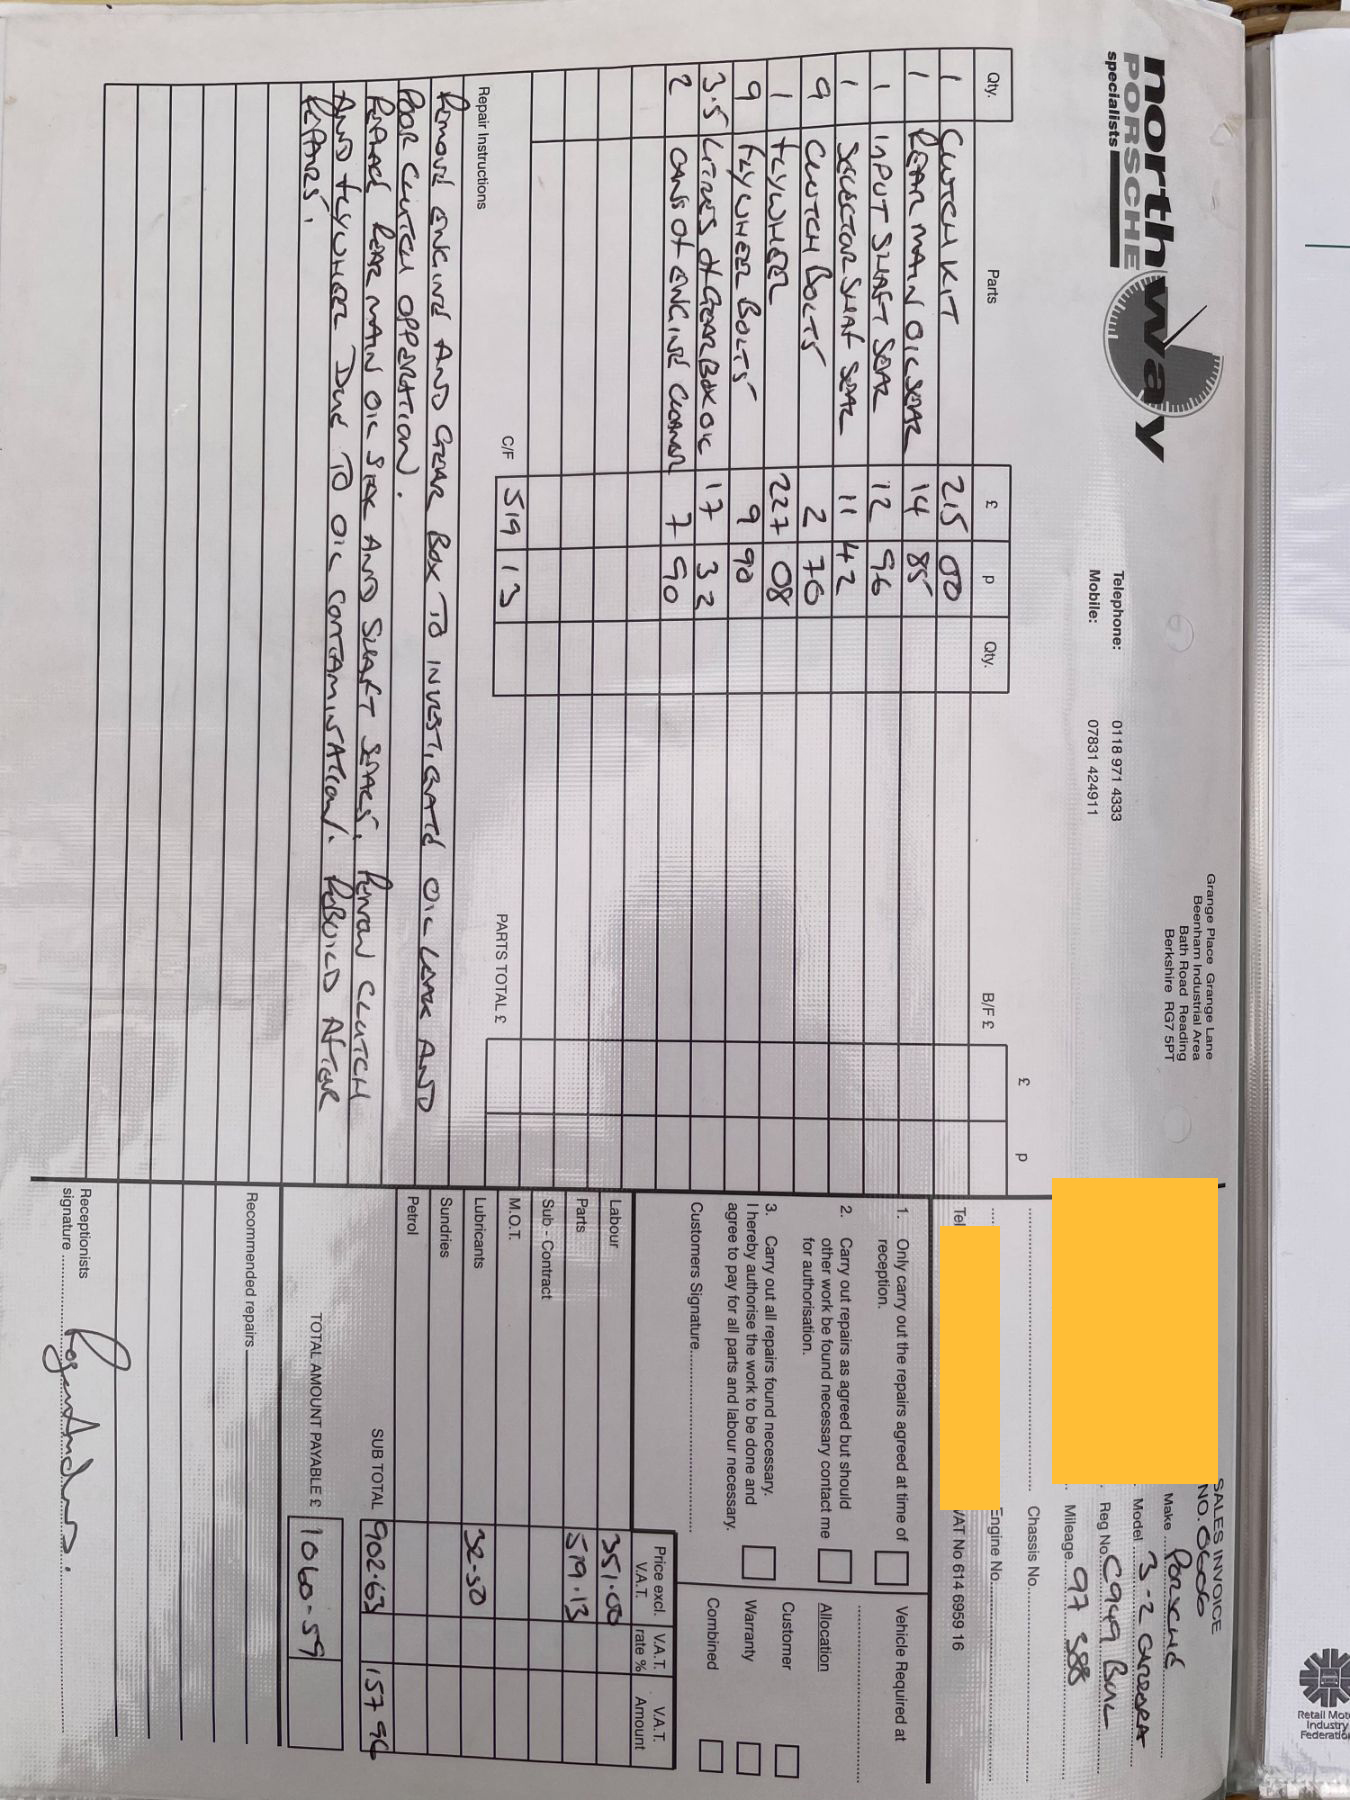 northway
PORSCHE
specialists
Telephone: 0118 971 4333
Mobile: 07831 424911
Grange Place Grange Lane
Beenham Industrial Area
Bath Road Reading
Berkshire RG7 5PT
SALES INVOICE
NO. 0606
Make Porsche
Model 3-2 CARRERA
Reg No. C949 BUL
Mileage 97 388
Chassis No.
Engine No.
Tel
VAT No 614 6959 16
Qty. Parts £ p Qty. B/F £ £ p
1 CLUTCH KIT 215 00
1 REAR MAIN OIL SEAL 14 85
1 INPUT SHAFT SEAL 12 96
1 SELECTOR SHAF SEAL 11 42
9 CLUTCH BOLTS 2 70
1 FLYWHEEL 227 08
9 FLYWHEEL BOLTS 9 90
3.5 LITRES OF GEARBOX OIL 17 32
2 CANS OF ENGINE CLEANER 7 90
C/F 519 13 PARTS TOTAL £
Repair Instructions
REMOVE ENGINE AND GEAR BOX TO INVESTIGATE OIL LEAK AND
POOR CLUTCH OPPERATION.
REPLACE REAR MAIN OIL SEAL AND SHAFT SEALS. RENEW CLUTCH
AND FLYWHEEL DUE TO OIL CONTAMINATION. REBUILD AFTER
REPAIRS.
1. Only carry out the repairs agreed at time of
reception.
2. Carry out repairs as agreed but should
other work be found necessary contact me
for authorisation.
3. Carry out all repairs found necessary.
I hereby authorise the work to be done and
agree to pay for all parts and labour necessary.
Customers Signature
Vehicle Required at
Allocation
Customer
Warranty
Combined
Price excl. V.A.T. V.A.T. rate % V.A.T. Amount
Labour 351.00
Parts 519.13
Sub - Contract
M.O.T.
Lubricants 32-50
Sundries
Petrol
SUB TOTAL 902.63 157 96
TOTAL AMOUNT PAYABLE £ 1060-59
Recommended repairs
Receptionists
signature
Retail Mot
Industry
Federatio